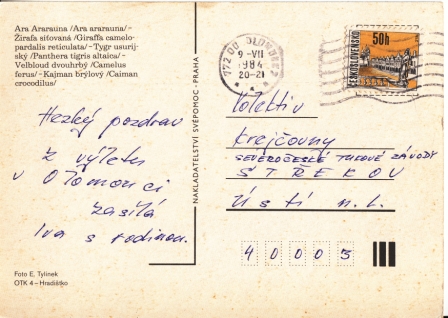 Ara Ararauna /Ara ararauna/ -
Žirafa síťovaná /Giraffa camelo-
pardalis reticulata/ - Tygr usurij-
ský /Panthera tigris altaica/ -
Velbloud dvouhrbý /Camelus
ferus/ - Kajman brýlový /Caiman
crocodilus/
Hezký pozdrav
z výletu
v Olomouci
zasílá
Iva s rodinou.
Foto E. Tylínek
OTK 4 – Hradištko
NAKLADATELSTVÍ SVÉPOMOC - PRAHA
772 00 OLOMOUC 2
9-VII
1984
20-21
50h
ČESKOSLOVENSKO
Kolektiv
Krejčovny
SEVEROČESKÉ TUKOVÉ ZÁVODY
STŘEKOV
Ústí n. L.
40003